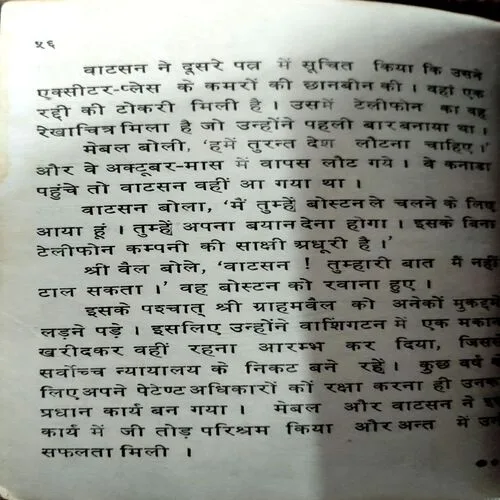 ५६
वाटसन ने दूसरे पत्न में सूचित किया कि उसने
एक्सीटर-प्लेस के कमरों की छानबीन की। वहां एक
रद्दी की टोकरी मिली है। उसमें टेलीफोन का वह
रेखाचित्र मिला है जो उन्होंने पहली बार बनाया था।
मेबल बोली, 'हमें तुरन्त देश लौटना चाहिए।'
और वे अक्टूबर-मास में वापस लौट गये। वे कनाडा
पहुंचे तो वाटसन वहीं आ गया था।
वाटसन बोला, 'मैं तुम्हें बोस्टन ले चलने के लिए
आया हूं। तुम्हें अपना बयान देना होगा। इसके बिना
टेलीफोन कम्पनी की साक्षी अधूरी है।'
श्री वैल बोले, 'वाटसन ! तुम्हारी बात मैं नहीं
टाल सकता।' वह बोस्टन को रवाना हुए।
इसके पश्चात् श्री ग्राहमवैल को अनेकों मुकद्दमे
लड़ने पड़े। इसलिए उन्होंने वाशिंगटन में एक मकान
खरीदकर वहीं रहना आरम्भ कर दिया, जिससे
सर्वोच्च न्यायालय के निकट बने रहें। कुछ वर्ष के
लिए अपने पेटेण्ट अधिकारों कों रक्षा करना ही उनका
प्रधान कार्य बन गया। मेबल और वाटसन ने इस
कार्य में जी तोड़ परिश्रम किया और अन्त में उन्हें
सफलता मिली ।